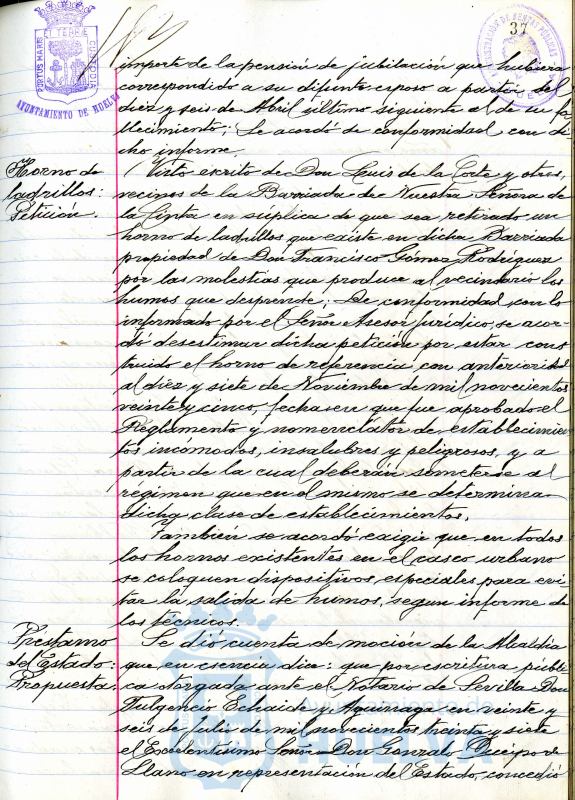 37
PORTUS MARIS ET TERRÆ CUSTODIA
AYUNTAMIENTO DE HUELVA
importe de la pensión de jubilación que hubiera
correspondido a su difunto esposo a partir del
diez y seis de Abril último siguiente al de su fa-
llecimiento; Se acordó de conformidad con di-
cho informe.
Horno de
ladrillos:
Petición.
Visto escrito de Don Luis de la Corte y otros,
vecinos de la Barriada de Nuestra Señora de
la Cinta en súplica de que sea retirado un
horno de ladrillos que existe en dicha Barriada
propiedad de Don Francisco Gómez Rodríguez
por las molestias que produce al vecindario los
humos que desprende; De conformidad con lo
informado por el Señor Asesor Jurídico, se acor-
dó desestimar dicha petición por estar cons-
truido el horno de referencia con anterioridad
al diez y siete de Noviembre de mil novecientos
veinte y cinco, fecha en que fue aprobado el
Reglamento y nomenclátor de establecimien-
tos incómodos, insalubres y peligrosos, y a
partir de la cual deberán someterse al
régimen que en el mismo se determina
dicha clase de establecimientos.
También se acordó exigir que en todos
los hornos existentes en el casco urbano
se coloquen dispositivos especiales para evi-
tar la salida de humos, segun informe de
los técnicos.
Prestamo
del Estado:
Propuesta:
Se dió cuenta de moción de la Alcaldía
que, en esencia dice: que por escritura públi-
ca otorgada ante el Notario de Sevilla Don
Fulgencio Echaide y Aguinaga en veinte y
seis de Julio de mil novecientos treinta y siete
el Excelentísimo Señor Don Gonzalo Queipo de
Llano en representación del Estado, concedió
Ayuntamiento de
HUELVA